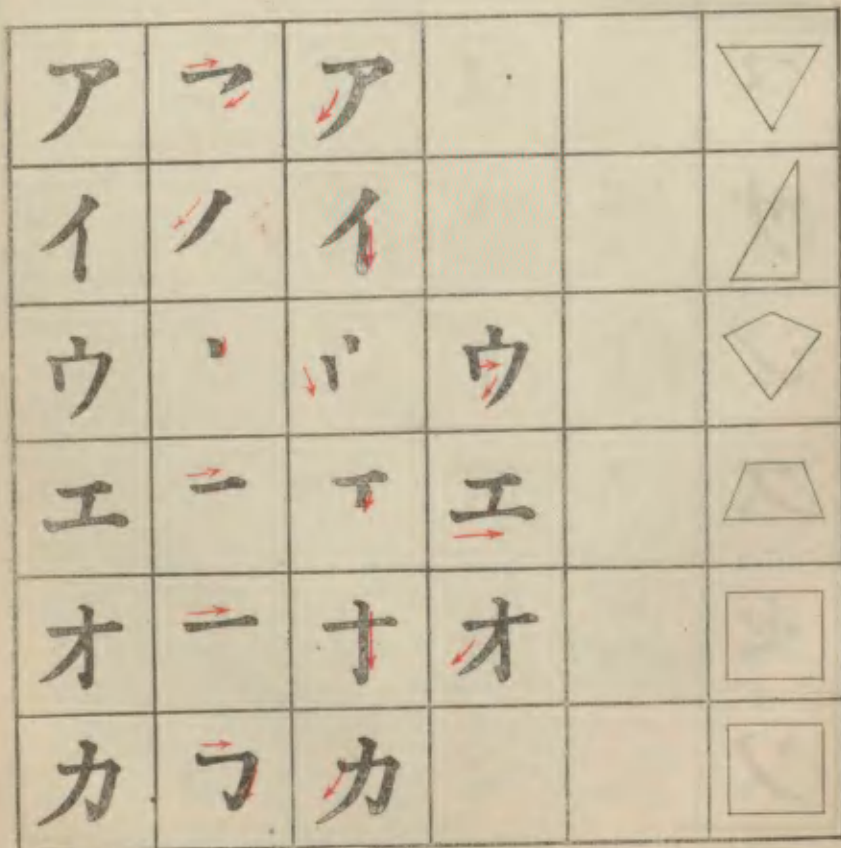 ア ㇇ ア
イ ノ イ
ウ ウ
エ 一 丅 エ
オ 一 十 オ
カ カ